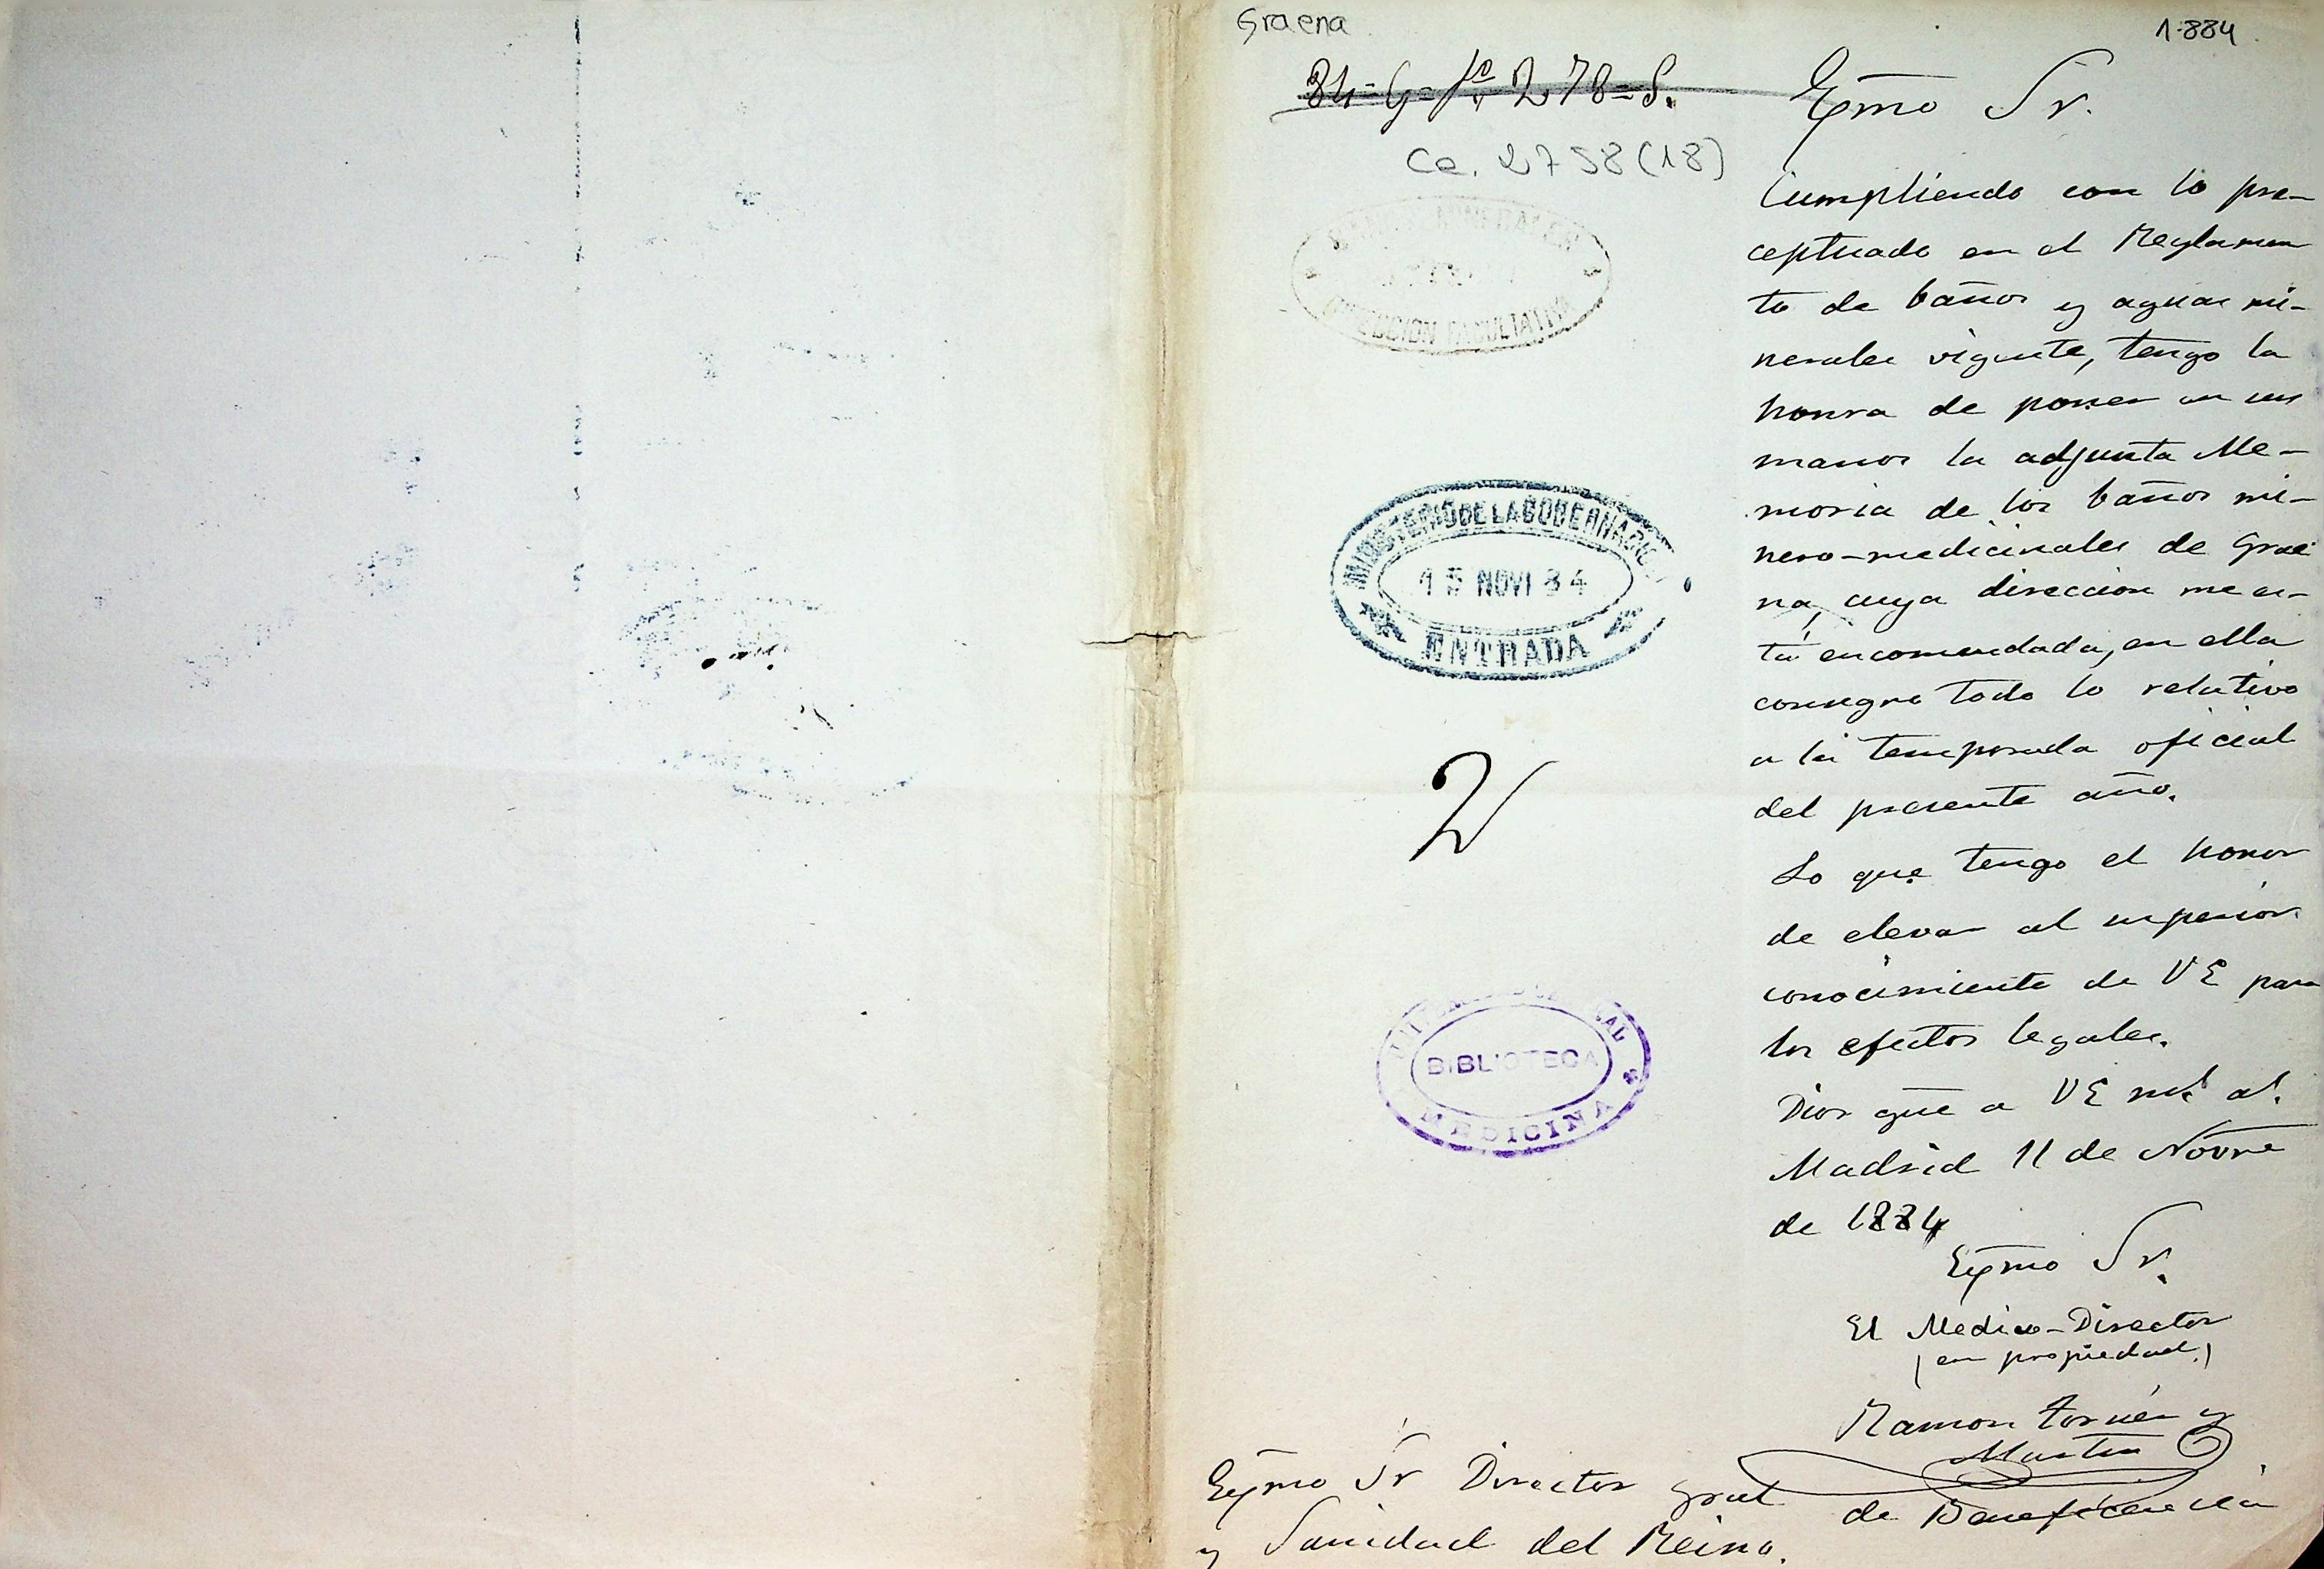 Graena
1.884
84-G-Nº 278-S.
Ca. 2758(18)
AGUAS MINERALES
DIRECCION FACULTATIVA
MINISTERIO DE LA GOBERNACION
15 NOVI 84
ENTRADA
2
BIBLIOTECA
MEDICINA
Exmo Sr.
Cumpliendo con lo pre-
ceptuado en el Reglamen
to de baños y aguas mi-
nerales vigente, tengo la
honra de poner en sus
manos la adjunta Me-
moria de los baños mi-
nero-medicinales de Grae
na, cuya direccion me es-
tá encomendada, en ella
consigno todo lo relativo
a la temporada oficial
del presente año.
Lo que tengo el honor
de elevar al superior
conocimiento de VE para
los efectos legales.
Dios gue a VE ms as.
Madrid 11 de Novre
de 1884
Exmo Sr.
El Medico-Director
(en propiedad.)
Ramon Tornér y
Martin
Exmo Sr Director gral de Beneficencia
y Sanidad del Reino.